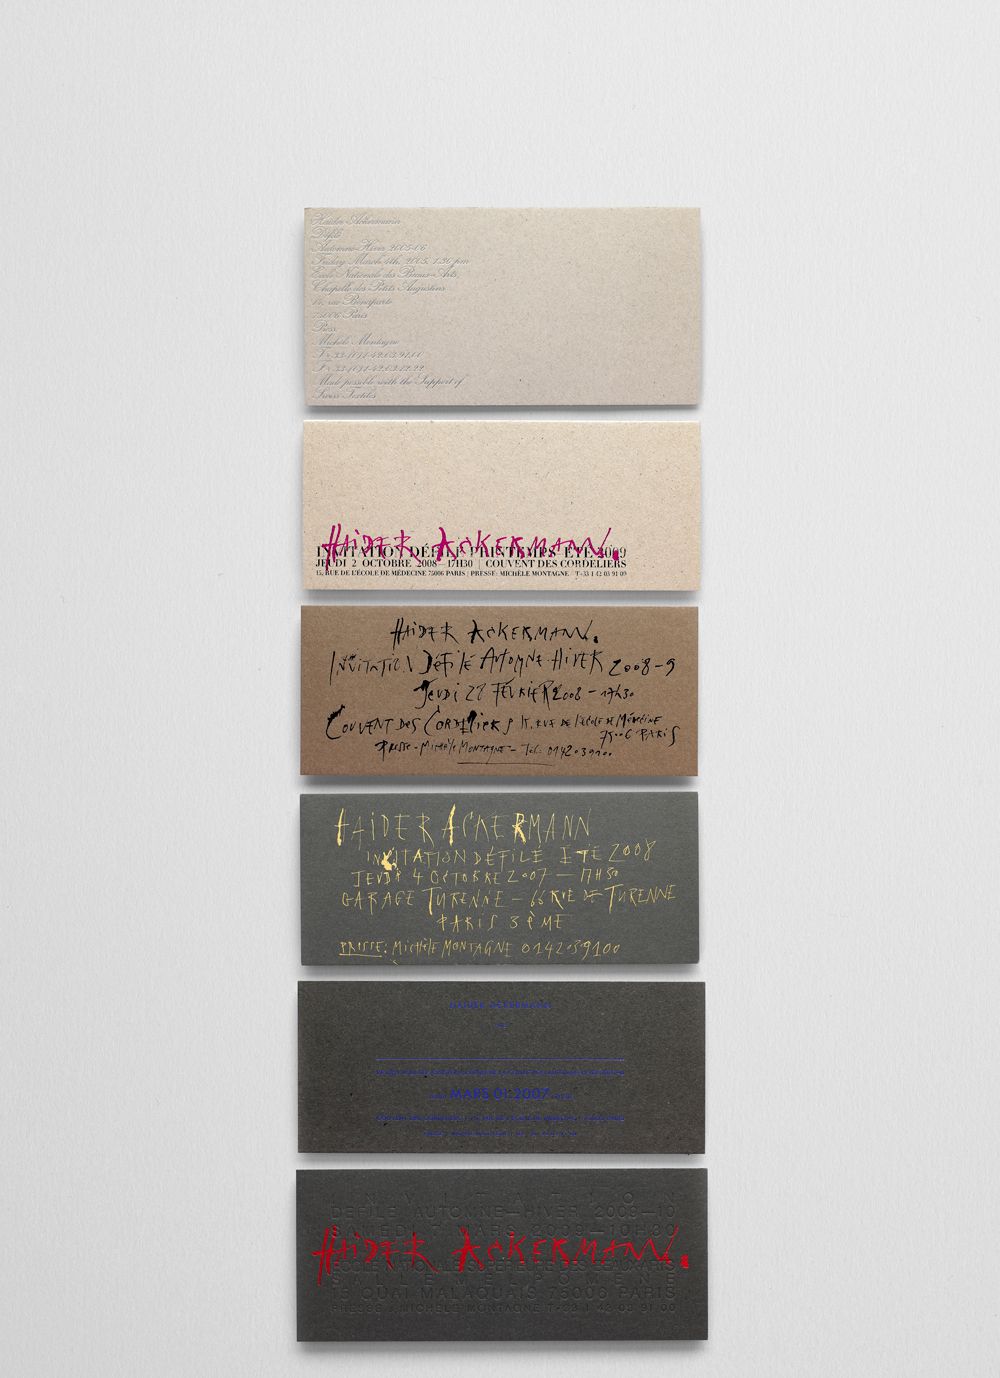 Haider Ackermann
Défilé
Automne-Hiver 2005-06
Friday March 4th, 2005, 1.30 pm
Ecole Nationale des Beaux-Arts,
Chapelle des Petits Augustins
14, rue Bonaparte
75006 Paris
Press
Michèle Montagne
Made possible with the Support of
Swiss Textiles
HAIDER ACKERMANN.
INVITATION DÉFILÉ PRINTEMPS-ÉTÉ 2009
JEUDI 2 OCTOBRE 2008—17H30 | COUVENT DES CORDELIERS
15, RUE DE L'ÉCOLE DE MÉDECINE 75006 PARIS | PRESSE: MICHÈLE MONTAGNE T+33 1 42 03 91 09
HAIDER ACKERMANN.
INVITATION DÉFILÉ AUTOMNE-HIVER 2008-9
JEUDI 28 FÉVRIER 2008 - 17H30
COUVENT DES CORDELIERS 15, RUE DE L'ÉCOLE DE MÉDECINE
75006 PARIS
PRESSE - MICHÈLE MONTAGNE - Tél: 0142039100
HAIDER ACKERMANN
INVITATION DÉFILÉ ÉTÉ 2008
JEUDI 4 OCTOBRE 2007 — 17H30
GARAGE TURENNE - 66 RUE DE TURENNE
PARIS 3ÈME
PRESSE: MICHÈLE MONTAGNE 0142039100
HAIDER ACKERMANN
MARS 01.2007
INVITATION
DEFILE AUTOMNE—HIVER 2009—10
SAMEDI 7 MARS 2009—10H30
HAIDER ACKERMANN.
ECOLE NATIONALE SUPERIEURE DES BEAUX-ARTS
SALLE MELPOMENE
13 QUAI MALAQUAIS 75006 PARIS
PRESSE : MICHELE MONTAGNE T+33 1 42 03 91 00